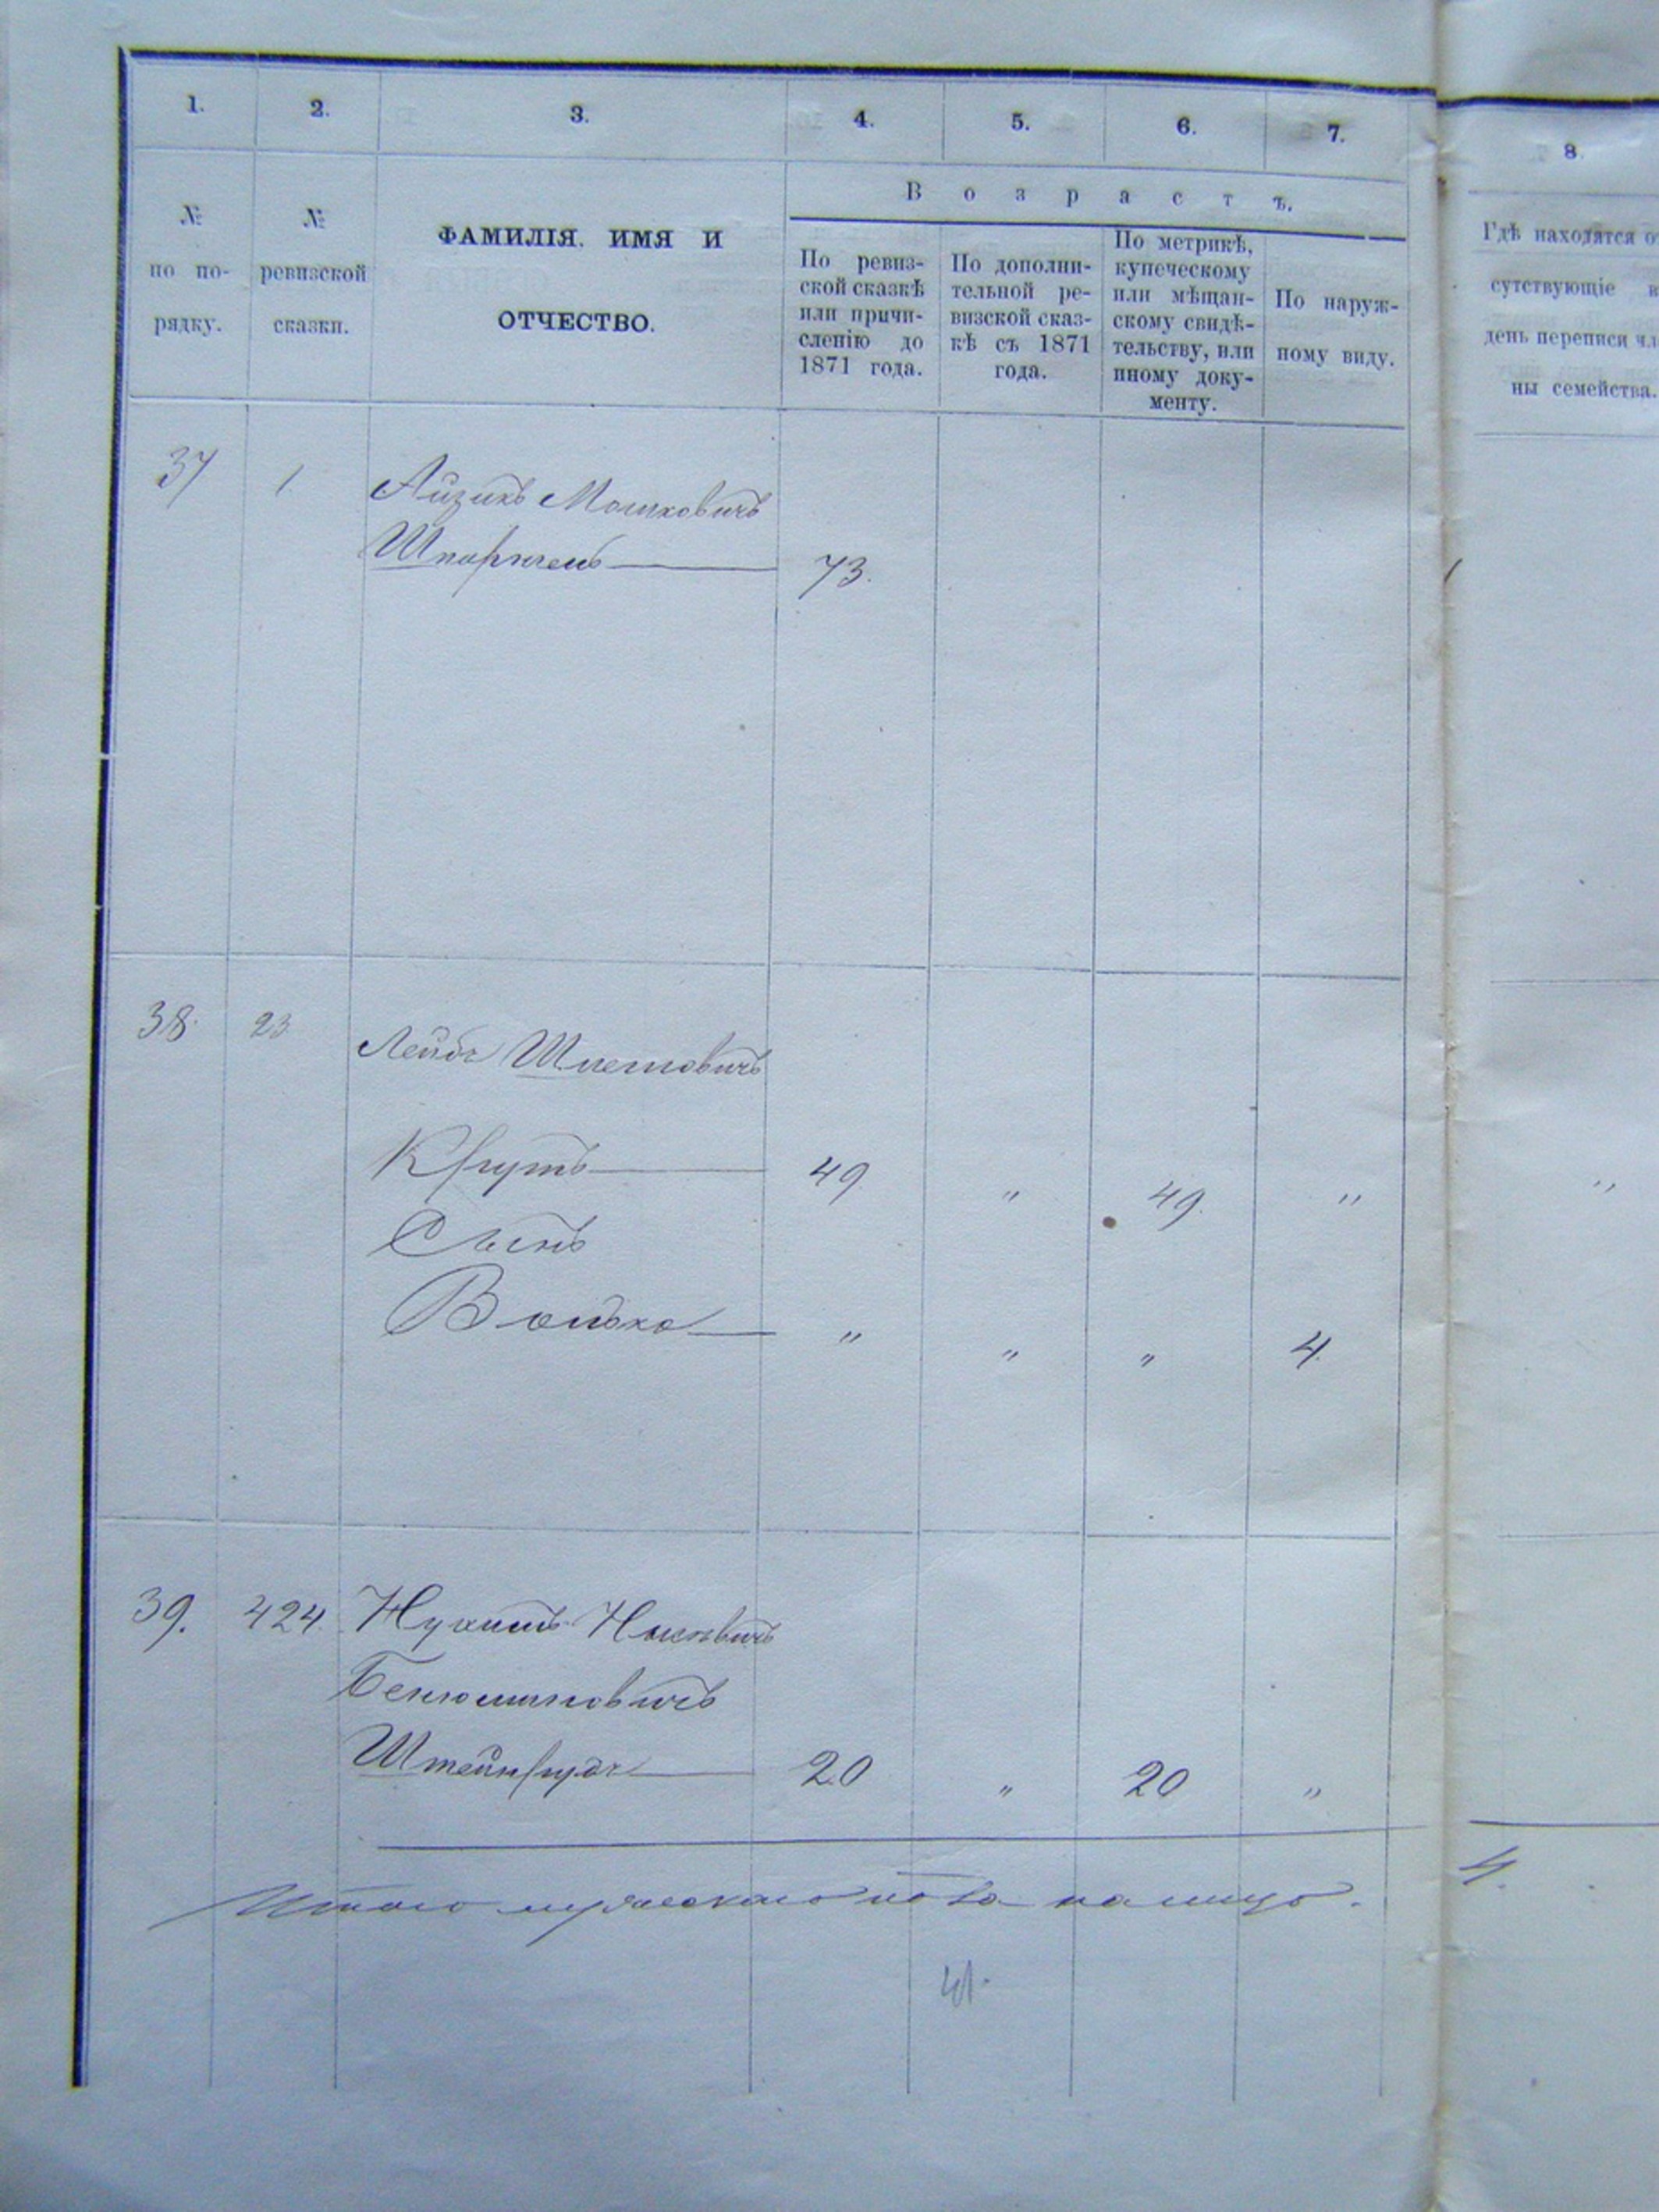 1. 2. 3. 4. 5. 6. 7. 8.
Возрастъ.
№ по по-рядку.
№ ревизской сказки.
ФАМИЛІЯ, ИМЯ И
ОТЧЕСТВО.
По ревиз-
ской сказкѣ
или причи-
сленію до
1871 года.
По дополни-
тельной ре-
визской сказ-
кѣ съ 1871
года.
По метрикѣ,
купеческому
или мѣщан-
скому свидѣ-
тельству, или
иному доку-
менту.
По наруж-
ному виду.
Гдѣ находятся от
сутствующіе в
день переписи чл
ны семейства.
37 1. Айзикъ Мошковичъ
73.
38. 23 Лейба
Крутъ 49 " 49. " "
Сынъ
Волько " " " 4.
39. 424.
Бенюминовичъ
20 " 20 "
Итого мужескаго пола на лицо. 4.
41.